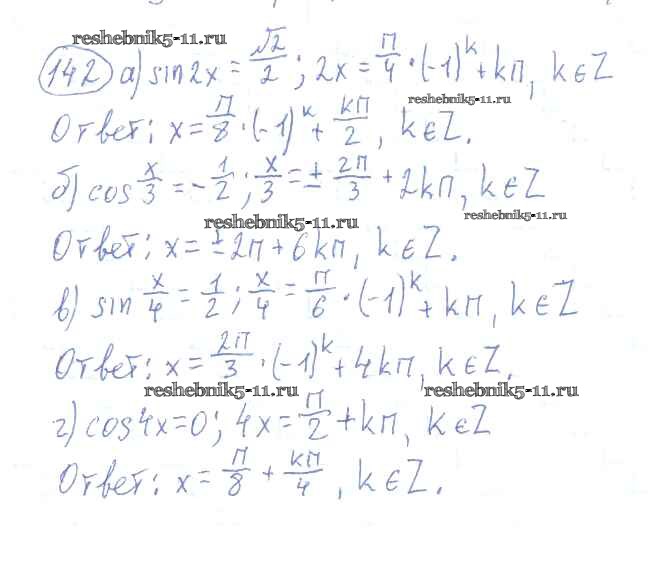 reshebnik5-11.ru
142 а) sin2x = √2/2; 2x = П/4 · (-1)^k + kП, k∈Z
reshebnik5-11.ru
Ответ: x = П/8 · (-1)^k + kП/2, k∈Z.
б) cos x/3 = -1/2; x/3 = ± 2П/3 + 2kП, k∈Z
reshebnik5-11.ru
reshebnik5-11.ru
Ответ: x = ± 2П + 6kП, k∈Z.
в) sin x/4 = 1/2; x/4 = П/6 · (-1)^k + kП, k∈Z
Ответ: x = 2П/3 · (-1)^k + 4kП, k∈Z.
reshebnik5-11.ru
reshebnik5-11.ru
г) cos4x=0; 4x = П/2 + kП, k∈Z
Ответ: x = П/8 + kП/4, k∈Z.